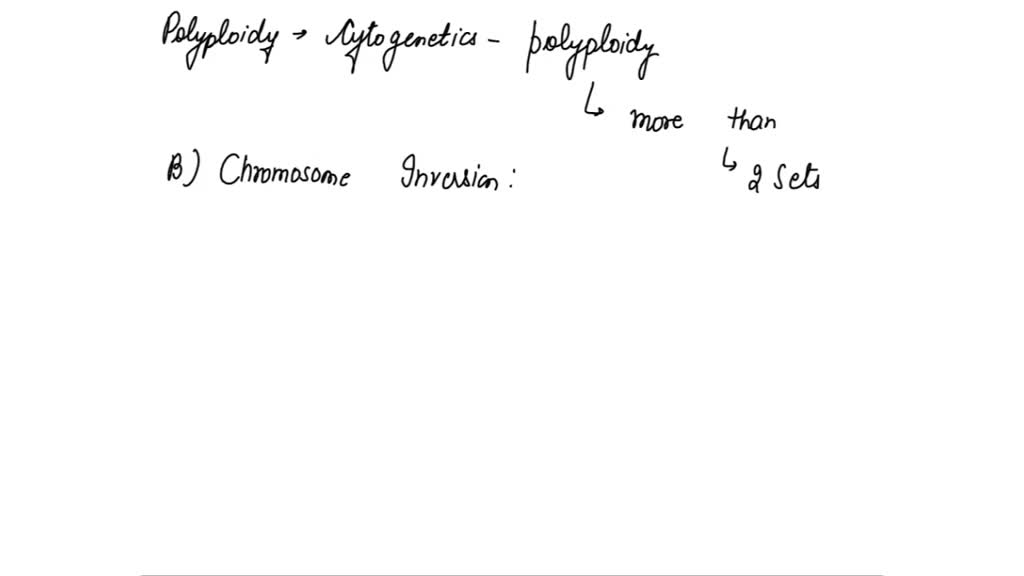 Polyploidy → Cytogenetics - polyploidy
↳ more than
B) Chromosome Inversion:
↳ 2 Sets